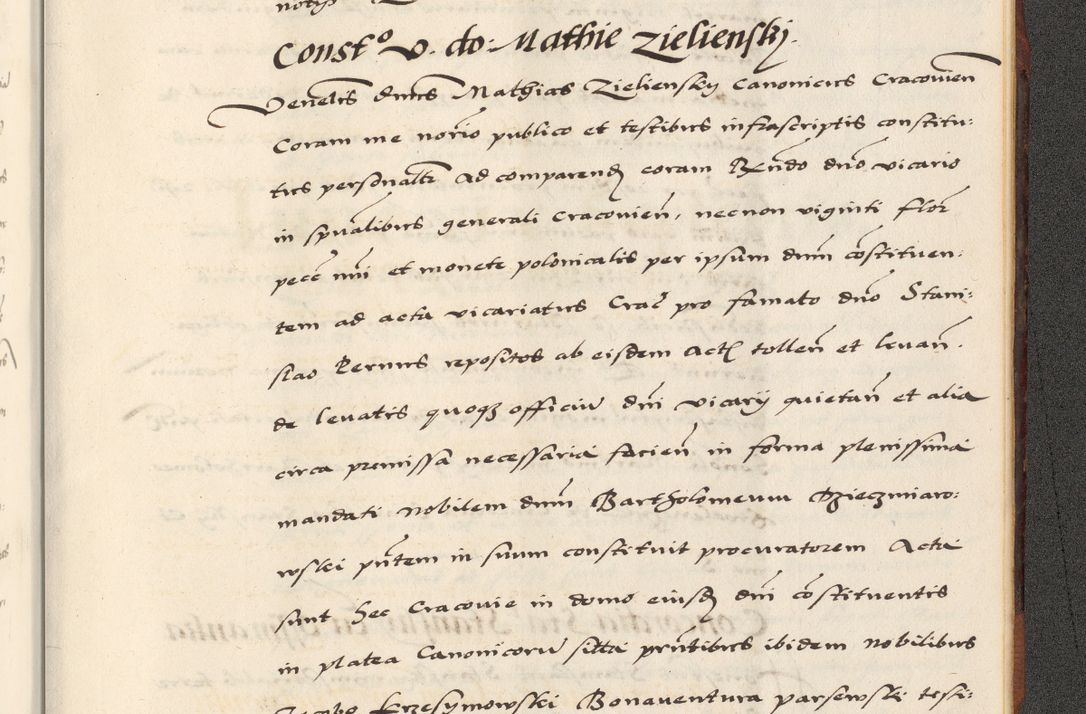 Const͂o v. do. Mathie Zielienskj.
Venelis dnus Mathias Zielienskij Canonicus Cracovien
Coram me nor̄io publico et testibus infrascriptis constitu:
tus personalt̄r ad comparend coram Rn̄do dn̄o vicario
in spualibus generali Cracovien, necnon viginti flor
pecc nr̄i et monete polonicalis per ipsum dnm cōstituen:
tem ad acta vicariatus Crac̄ pro famato dn̄o Stani:
slao repositos ab eisdem Act tollen̄ et levan̄.
de levatis quoq officiu dn̄i vicarij quietan̄ et alia
circa premissa necessaria facien̄ in forma plenissima
mandati nobilem dnm̄ Bartholomeum Dzieczmiaro:
wski pn̄tem in suum constituit procuratorem Acta
sunt hec Cracovie in domo eiusd dn̄i cōstituentis
in platea Canonicorū sitta prn̄tibus ibidem nobilibus
Krzesymowski Bonaventura parsewski testi: